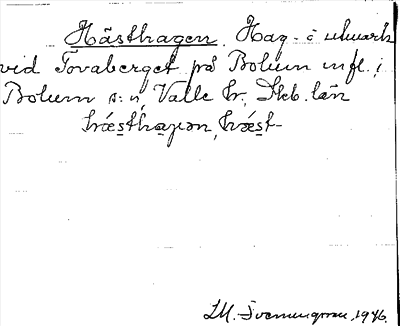 Hästhagen. Hag- o utmark
vid Tovaberget på Bolum m fl. i
Bolum s:n, Valle hr, Skb. län
hǽsthaɡən, hǽst-
S.M. Svenungsson, 1946.